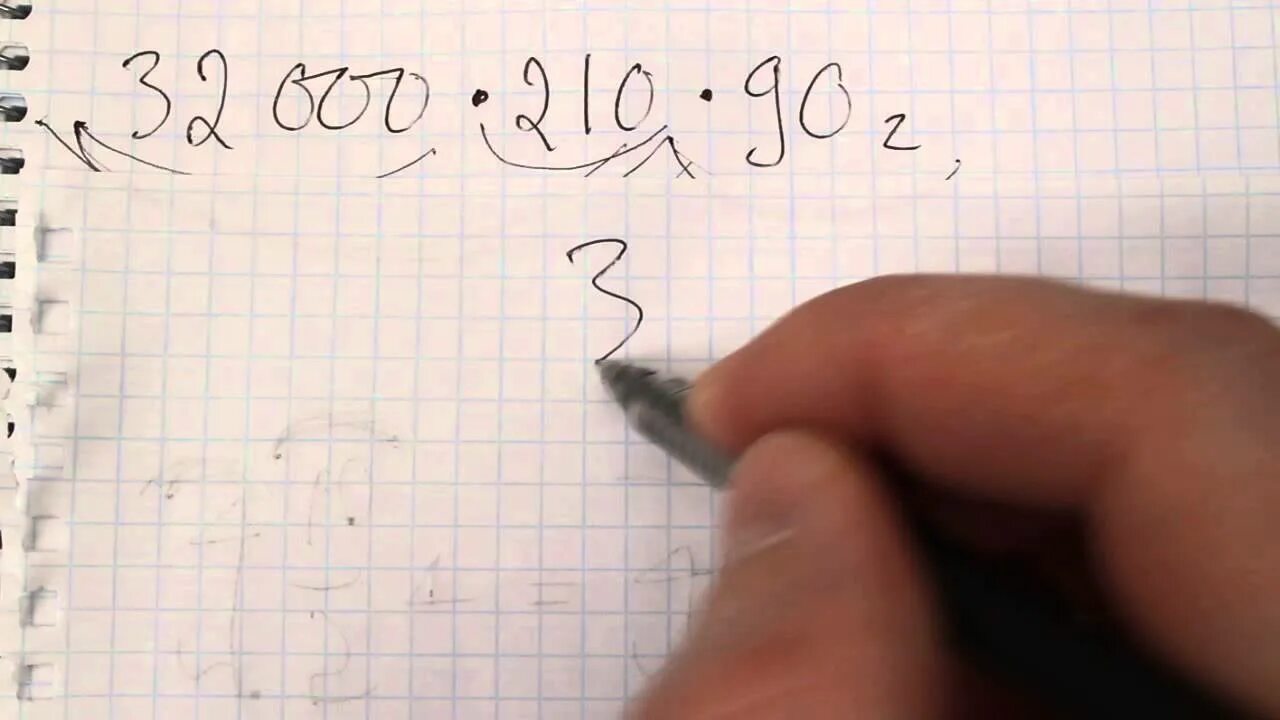 32 000 · 210 · 90 г,
3